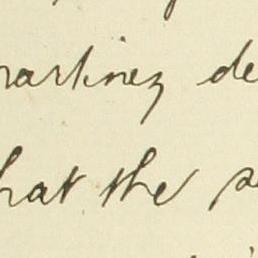 martinez de
hat the s